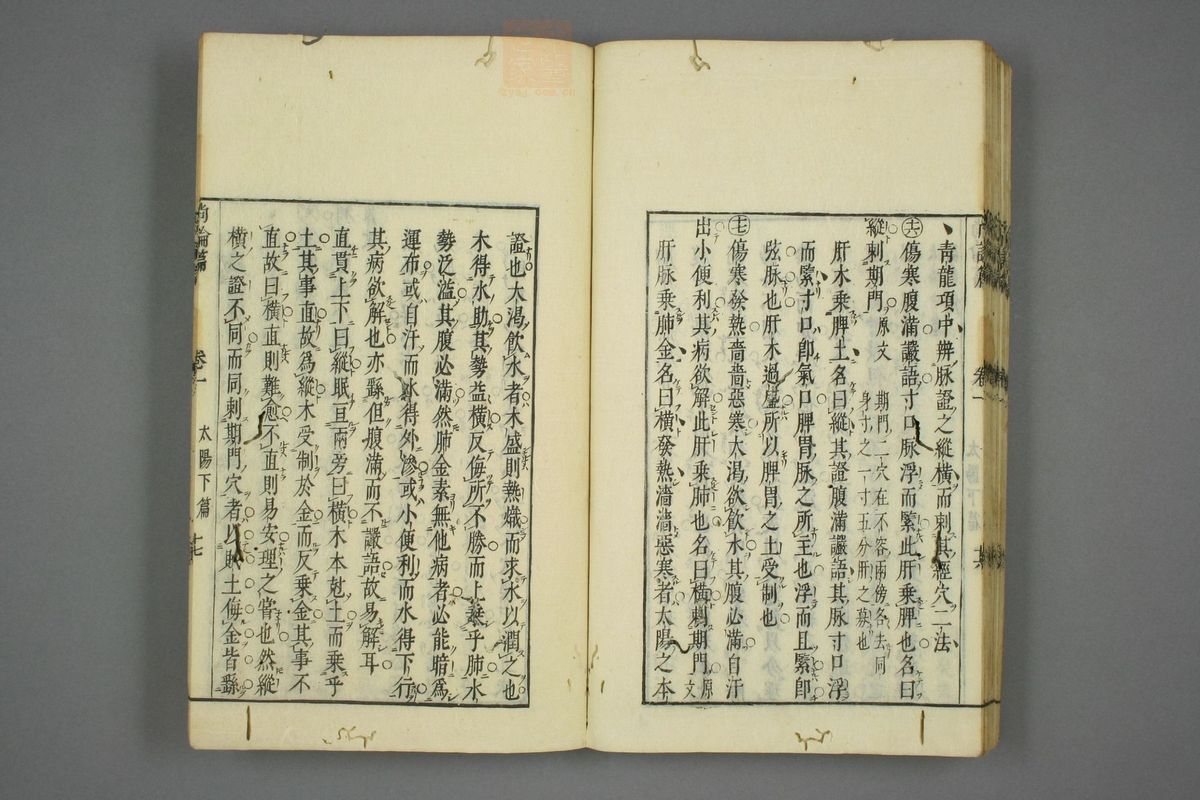 青龍項中辨脉證之縱橫而刺其經穴二法
㊅傷寒腹滿讝語寸口脉浮而緊此肝乘脾也名曰
縱刺期門原文 期門二穴在不容兩傍各去同身寸之一寸五分肝之募也
肝木乘脾土名曰縱其證腹滿讝語其脉寸口浮
而緊寸口卽氣口脾胃脉之所主也浮而且緊卽
弦脉也肝木過盛所以脾胃之土受制也
傷寒發熱嗇嗇惡寒大渴欲飮水其腹必滿自汗
出小便利其病欲解此肝乘肺也名曰橫刺期門原文
肝脉乘肺金名曰橫發熱濇濇惡寒者太陽之本
尚論篇 卷一 太陽下篇 十七
證也大渴飮水者木盛則熱熾而求水以潤之也
木得水助其勢益橫反侮所不勝而上乘乎肺水
勢泛濫其腹必滿然肺金素無他病者必能暗爲
運布或自汗而水得外滲或小便利而水得下行
其病欲解也亦繇但腹滿而不讝語故易解耳
直貫上下曰縱眠亘兩旁曰橫木本尅土而乘乎
土其事直故爲縱木受制於金而反乘金其事不
直故曰橫直則難愈不直則易安理之常也然縱
橫之證不同而同刺期門穴者以賊土侮金皆繇